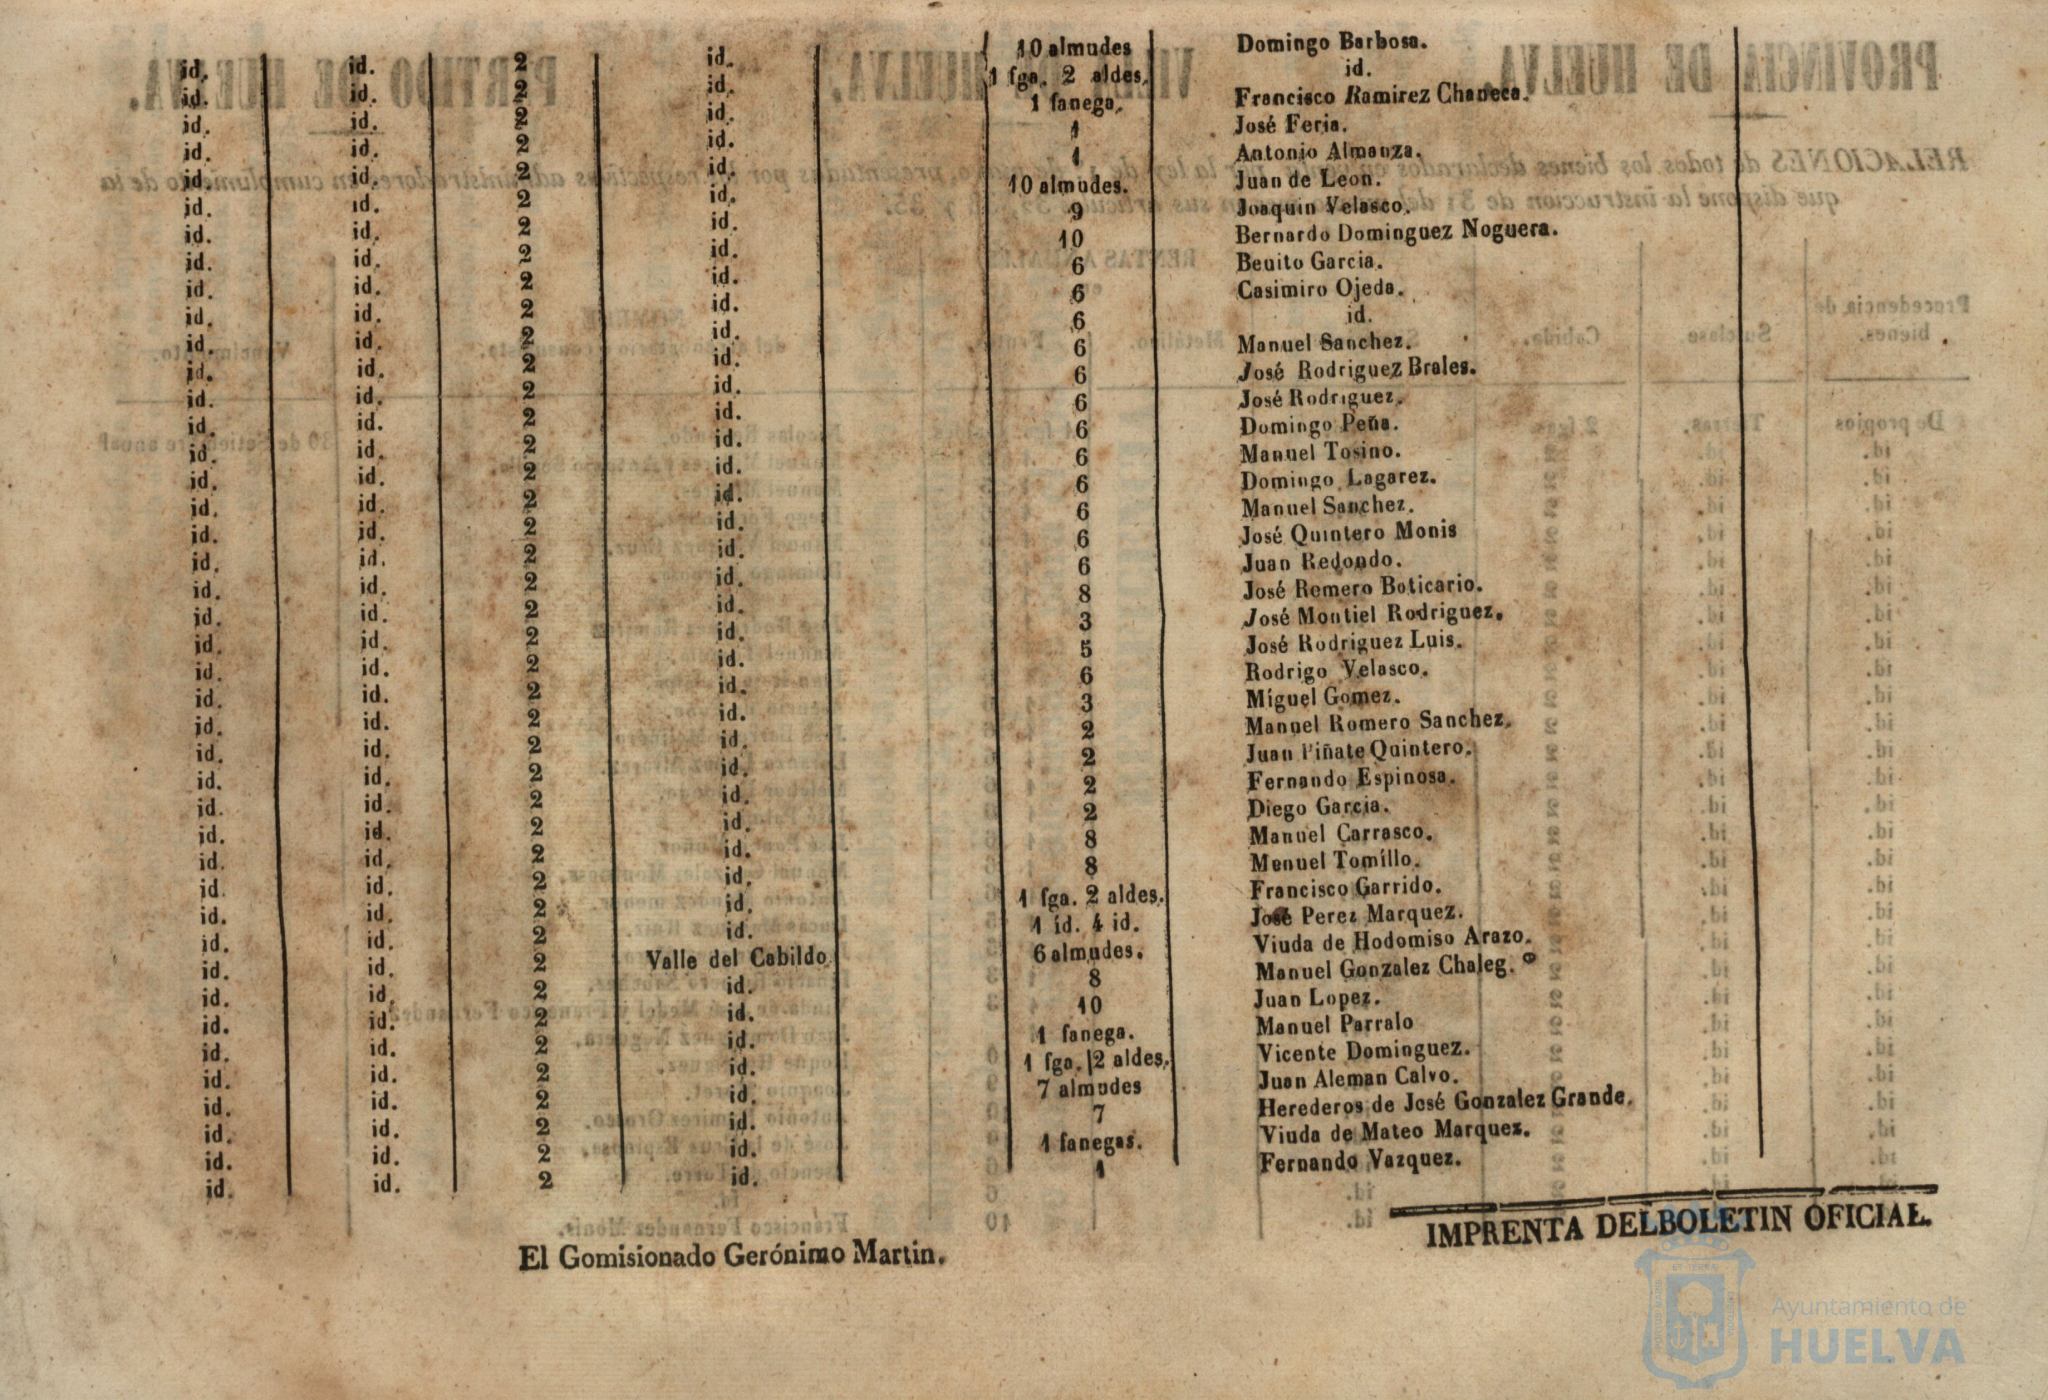 id. id. 2 id. 10 almudes Domingo Barbosa.
id. id. 2 id. 1 fga. 2 aldes. id.
id. id. 2 id. 1 fanega. Francisco Ramirez Chaneca.
id. id. 2 id. 1 José Feria.
id. id. 2 id. 1 Antonio Almanza.
id. id. 2 id. 10 almudes. Juan de Leon.
id. id. 2 id. 9 Joaquin Velasco.
id. id. 2 id. 10 Bernardo Dominguez Noguera.
id. id. 2 id. 6 Beuito Garcia.
id. id. 2 id. 6 Casimiro Ojeda.
id. id. 2 id. 6 id.
id. id. 2 id. 6 Manuel Sanchez.
id. id. 2 id. 6 José Rodriguez Brales.
id. id. 2 id. 6 José Rodriguez.
id. id. 2 id. 6 Domingo Peña.
id. id. 2 id. 6 Manuel Tosino.
id. id. 2 id. 6 Domingo Lagarez.
id. id. 2 id. 6 Manuel Sanchez.
id. id. 2 id. 6 José Quintero Monis
id. id. 2 id. 6 Juan Redondo.
id. id. 2 id. 8 José Romero Boticario.
id. id. 2 id. 3 José Montiel Rodriguez.
id. id. 2 id. 5 José Rodriguez Luis.
id. id. 2 id. 6 Rodrigo Velasco.
id. id. 2 id. 3 Miguel Gomez.
id. id. 2 id. 2 Manuel Romero Sanchez.
id. id. 2 id. 2 Juan Piñate Quintero.
id. id. 2 id. 2 Fernando Espinosa.
id. id. 2 id. 2 Diego Garcia.
id. id. 2 id. 8 Manuel Carrasco.
id. id. 2 id. 8 Menuel Tomillo.
id. id. 2 id. 1 fga. 2 aldes. Francisco Garrido.
id. id. 2 id. 1 id. 4 id. José Perez Marquez.
id. id. 2 Valle del Cabildo 6 almudes. Viuda de Hodomiso Arazo.
id. id. 2 id. 8 Manuel Gonzalez Chaleg.
id. id. 2 id. 10 Juan Lopez.
id. id. 2 id. 1 fanega. Manuel Parralo
id. id. 2 id. 1 fga. 2 aldes. Vicente Dominguez.
id. id. 2 id. 7 almudes Juan Aleman Calvo.
id. id. 2 id. 7 Herederos de José Gonzalez Grande.
id. id. 2 id. 1 fanegas. Viuda de Mateo Marquez.
id. id. 2 id. 1 Fernando Vazquez.
IMPRENTA DELBOLETIN OFICIAL.
El Gomisionado Gerónimo Martin.
Ayuntamiento de
HUELVA